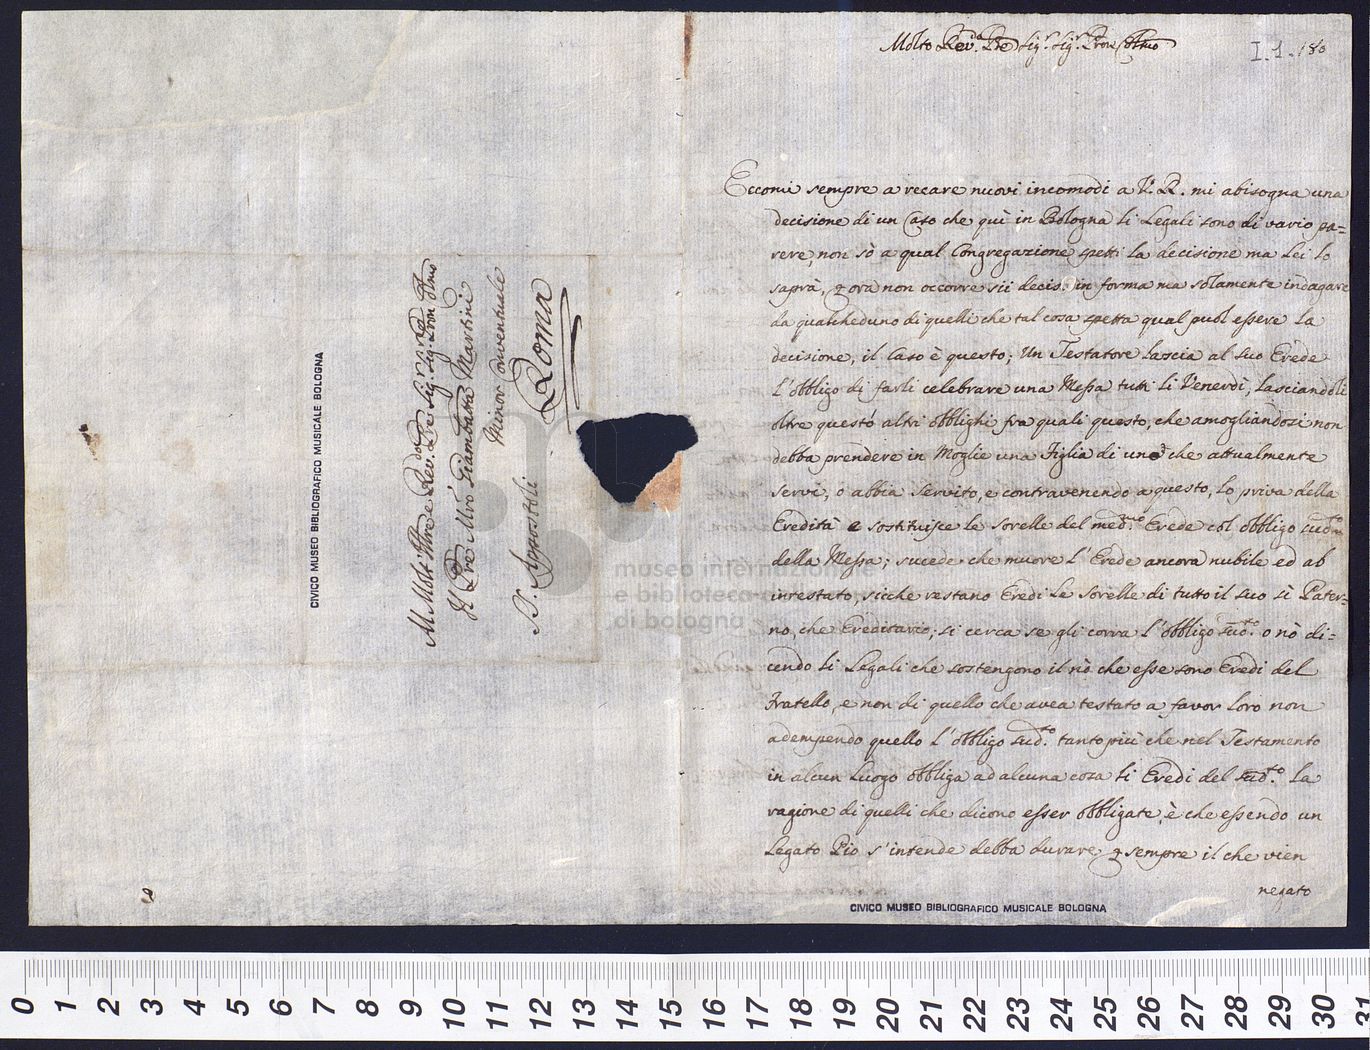 Molto Rev. Pre Sig.r Sig.r Prone Colmo
I.1.180
Eccomi sempre a recare nuovi incomodi a V. R. mi abisogna una
decisione di un Caso che quì in Bologna li Legali sono di vario pa=
rere, non sò a qual Congregazione spetti la decisione ma Lei lo
saprà, p ora non occorre sii decis. in forma ma solamente indagare
da qualcheduno di quelli che tal cosa spetta qual puol essere la
decisione, il Caso è questo; Un Testatore lascia al suo Erede
l'obbligo di farli celebrare una Messa tutti li Venerdì, lasciandoli
oltre questo altri obblighi fra quali questo, che amogliandosi non
debba prendere in Moglie una Figlia di uno che attualmente
servi, o abbia servito, e contravenendo a questo, lo priva della
Eredità e sostituisce le sorelle del med.mo Erede col obbligo sud.to
della Messa; sucede che muore l'Erede ancora nubile ed ab
intestato, sicche restano Eredi le sorelle di tutto il suo sì Pater=
no, che Ereditario; si cerca se gli corra l'obbligo sud.to o nò di=
cendo li Legali che sostengono il nò che esse sono Eredi del
Fratello, e non di quello che avea testato a favor loro non
adempendo quello l'obbligo sud.to tanto più che nel Testamento
in alcun luogo obbliga ad alcuna cosa li Eredi del sud.to La
ragione di quelli che dicono esser obbligate, è che essendo un
Legato Pio s'intende debba durare p sempre il che vien
negato
CIVICO MUSEO BIBLIOGRAFICO MUSICALE BOLOGNA
Al Molto Illre e Rev. Pre Sig. Sig. Pron Colmo
Il Pre Mro Giambatta Martini
Minor Conventuale
SS. Apostoli
Roma
CIVICO MUSEO BIBLIOGRAFICO MUSICALE BOLOGNA
museo internazionale
e biblioteca
di bologna
0 1 2 3 4 5 6 7 8 9 10 11 12 13 14 15 16 17 18 19 20 21 22 23 24 25 26 27 28 29 30 31